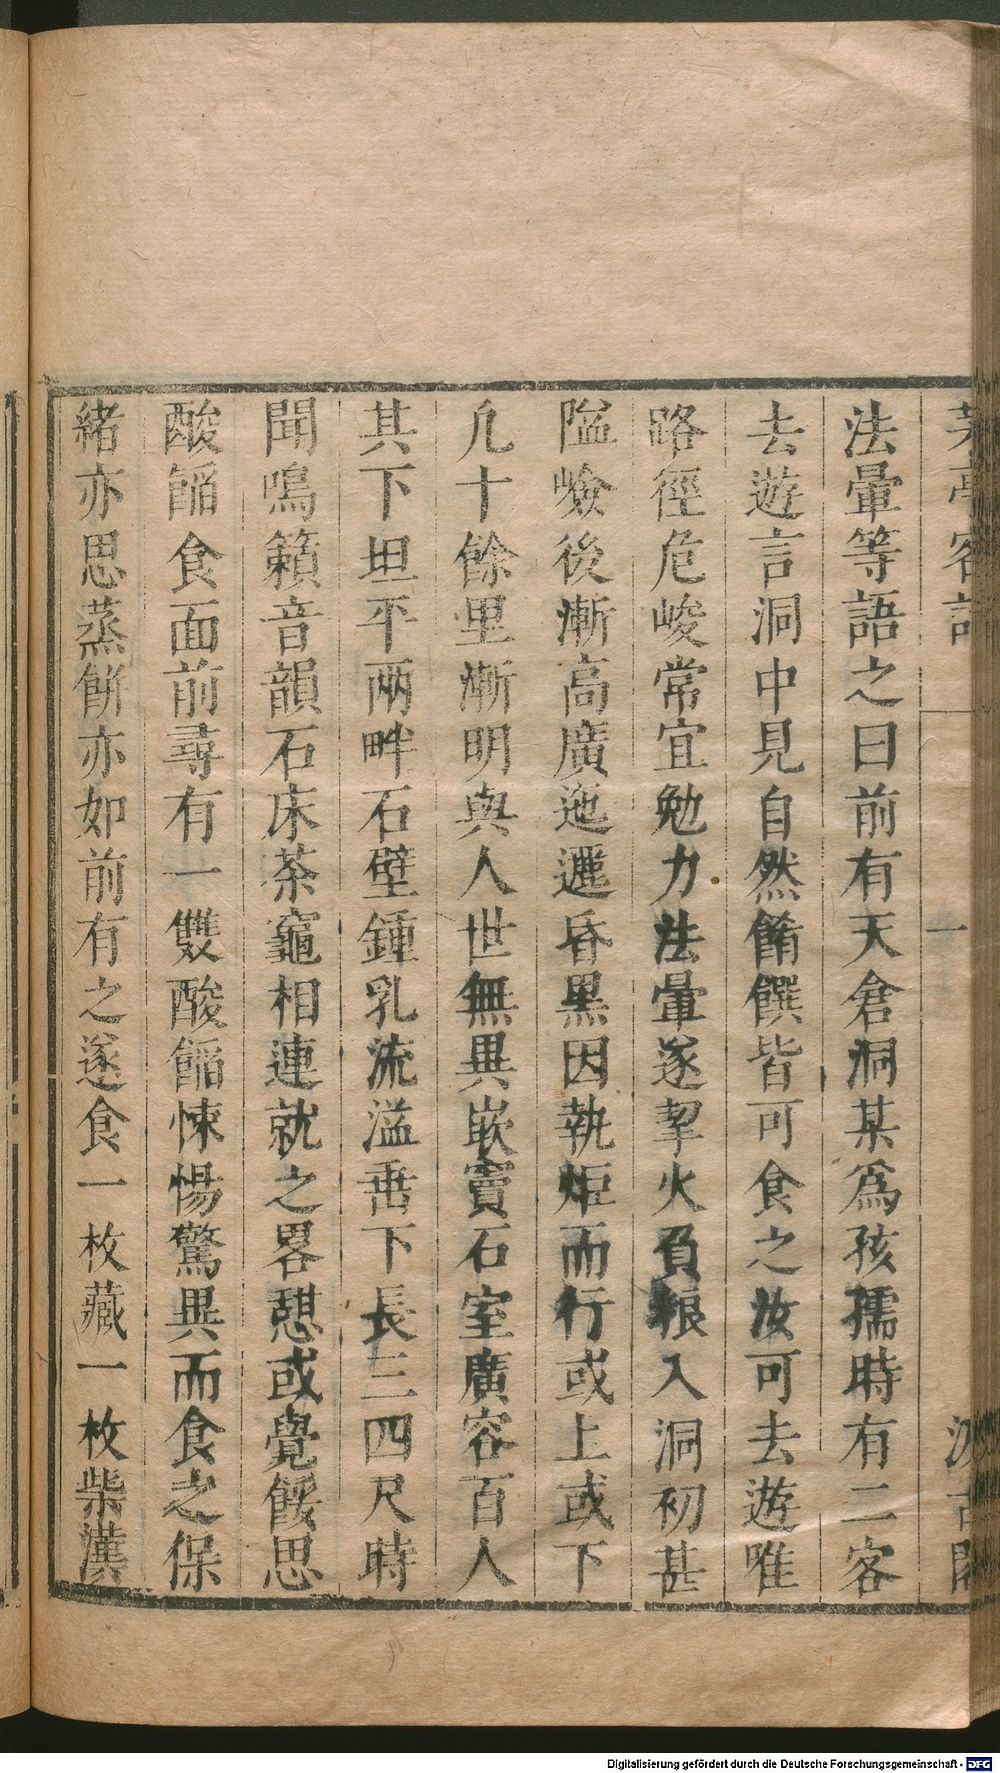 茅亭客話
一
汲古閣
法暈等語之曰前有天倉洞某爲孩孺時有二客
去遊言洞中見自然餚饌皆可食之汝可去遊唯
路徑危峻常宜勉力法暈遂挈火負粮入洞初甚
隘嶮後漸高廣迤邐昏黒因執炬而行或上或下
凢十餘里漸明與人世無異嵌竇石室廣容百人
其下坦平兩畔石壁鍾乳流溢垂下長三四尺時
聞鳴籟音韻石床茶竈相連就之畧憇或覺餒思
酸餡食面前尋有一雙酸餡悚惕驚異而食之保
緒亦思蒸餅亦如前有之遂食一枚藏一枚柴漢
Digitalisierung gefördert durch die Deutsche Forschungsgemeinschaft - DFG